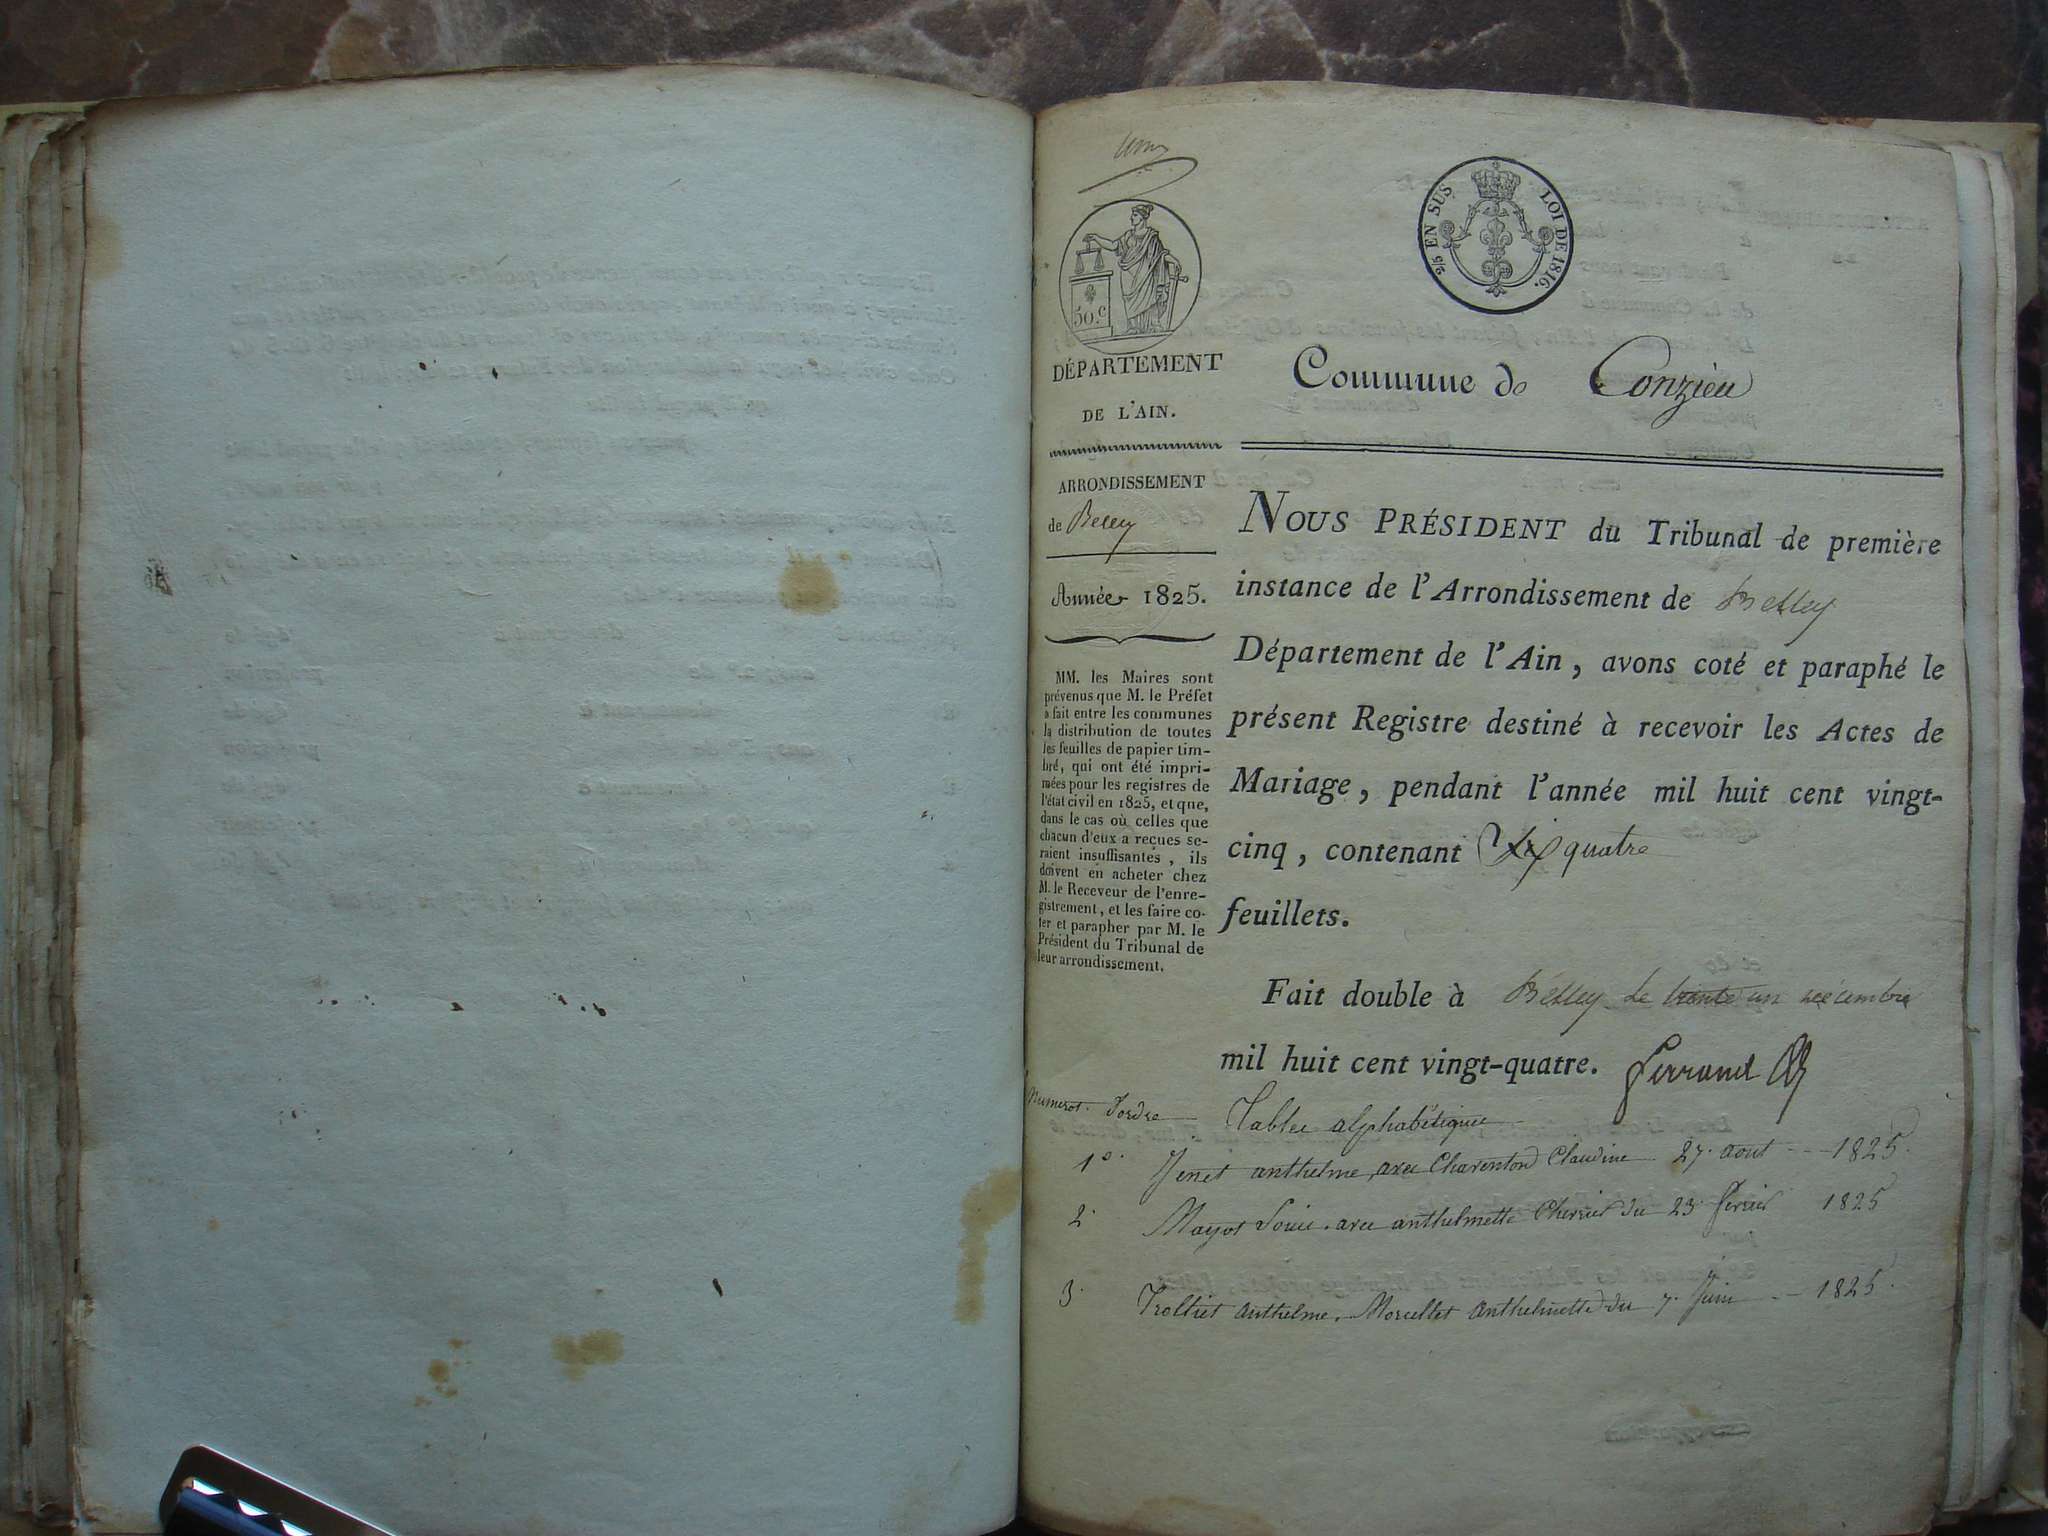 2/5 EN SUS
LOI DE 1816.
50.c
DÉPARTEMENT
DE L'AIN.
ARRONDISSEMENT
de Belley
Année 1825.
MM. les Maires sont
prévenus que M. le Préfet
a fait entre les communes
la distribution de toutes
les feuilles de papier tim-
bré, qui ont été impri-
mées pour les registres de
l'état civil en 1825, et que,
dans le cas où celles que
chacun d'eux a reçues se-
raient insuffisantes, ils
doivent en acheter chez
M. le Receveur de l'enre-
gistrement, et les faire co-
ter et parapher par M. le
Président du Tribunal de
leur arrondissement.
Commune de Conzieu
NOUS PRÉSIDENT du Tribunal de première
instance de l'Arrondissement de Belley
Département de l'Ain, avons coté et paraphé le
présent Registre destiné à recevoir les Actes de
Mariage, pendant l'année mil huit cent vingt-
cinq, contenant quatre
feuillets.
Fait double à Belley le trente un décembre
mil huit cent vingt-quatre. Ferrand
Numeros d'ordre Table alphabétique
1º. Jenet anthelme avec Charenton Claudine 27. aout 1825.
2. Mayot Louis avec anthelmette du 23 fevrier 1825
3. Trolliet anthelme. Morcellet anthelmette du 7. Juin 1825.